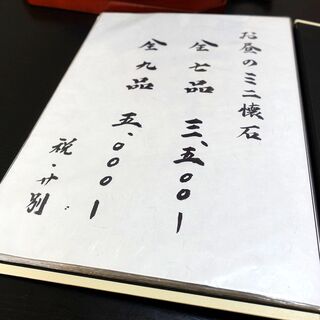 お昼のミニ懐石
全七品 三、五〇〇ー
全九品 五、〇〇〇ー
税・サ別